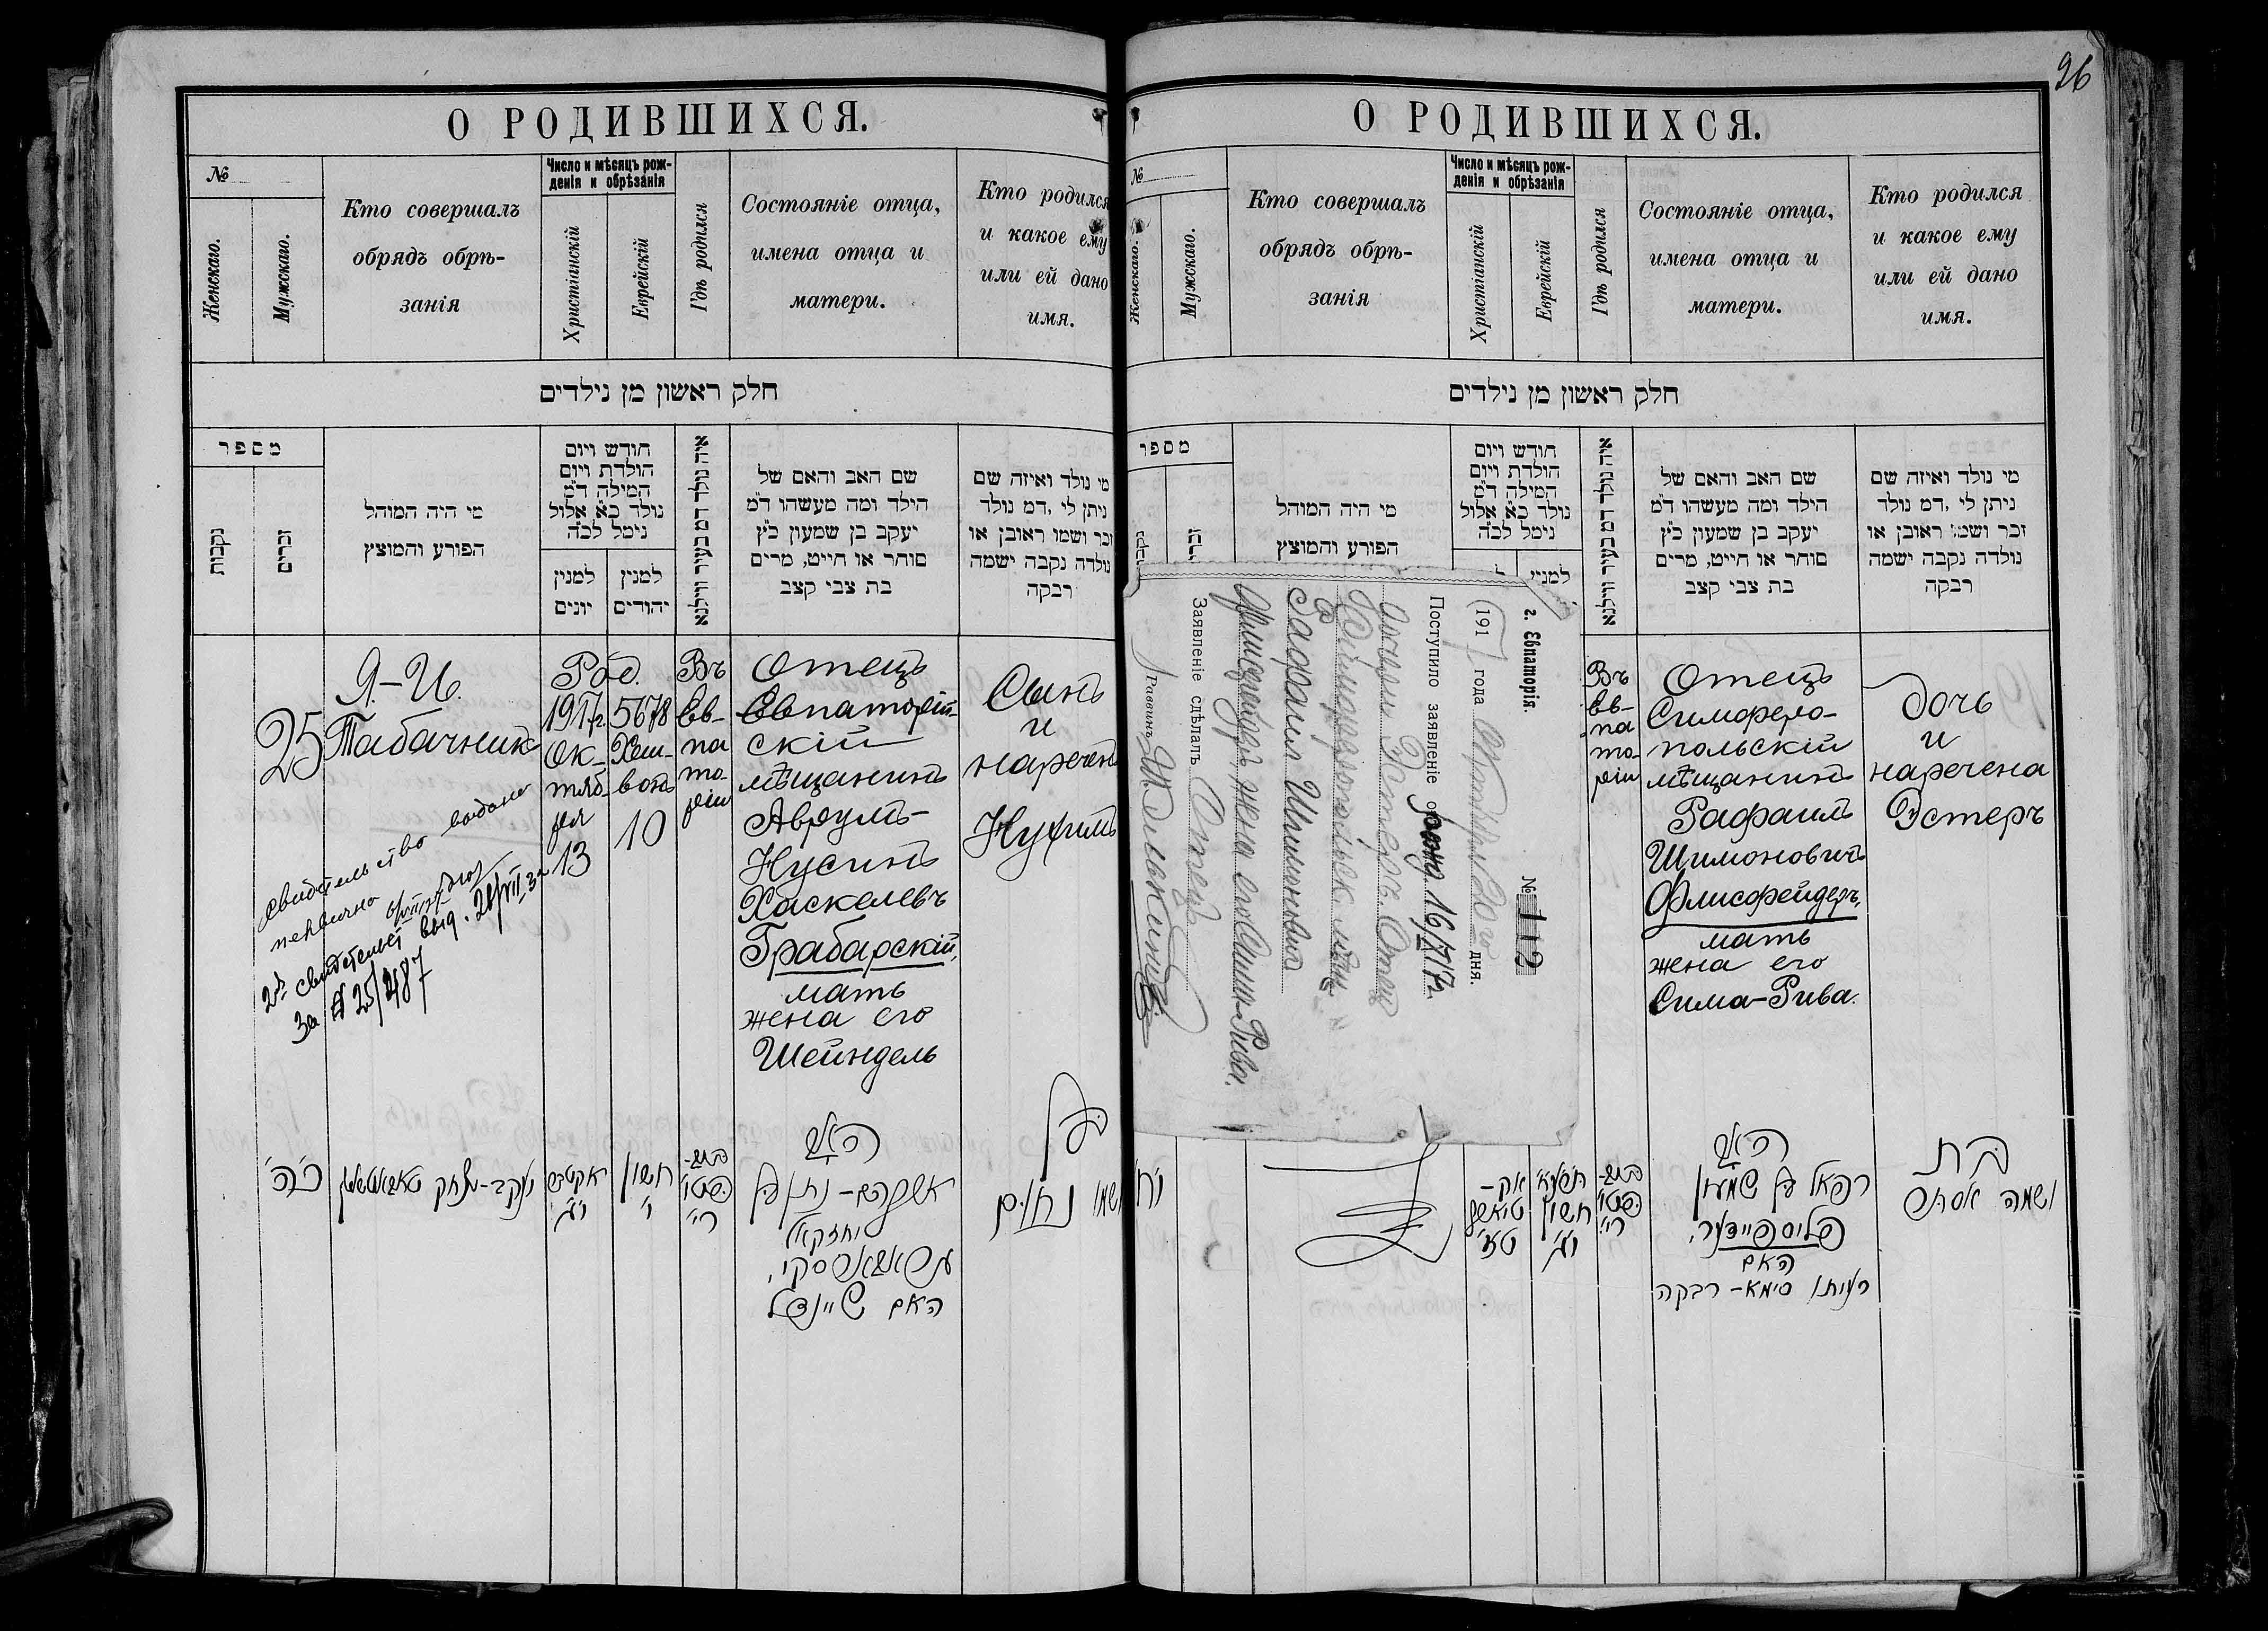 О РОДИВШИХСЯ.
№
Женскаго.
Мужскаго.
Кто совершалъ
обрядъ обрѣ-
занія
Число и мѣсяцъ рож-
денія и обрѣзанія
Христіанскій
Еврейскій
Гдѣ родился
Состояніе отца,
имена отца и
матери.
Кто родился
и какое ему
или ей дано
имя.
חלק ראשון מן נילדים
מספר
נקבות
זכרים
מי היה המוהל
הפורע והמוצץ
חודש ויום
הולדת ויום
המילה ד״מ
נולד כ״א אלול
נימל לכ״ה
למנין
יונים
למנין
יהודים
איה נולד דמ בעיר ווילנא
שם האב והאם של
הילד ומה מעשהו ד״מ
יעקב בן שמעון כ״ץ
סוחר או חייט, מרים
בת צבי קצב
מי נולד ואיזה שם
ניתן לי ,דמ נולד
זכר ושמו ראובן או
נולדה נקבה ישמה
רבקה
25
Я.-И.
Табачник
Род.
1917г.
Ок-
тяб-
ря
13
5678
Хеш-
вонъ
10
Въ
Ев-
па
то-
ріи
Отецъ
Евпаторій-
скій
мѣщанинъ
Аврумъ-
Нусинъ
Хаскелевъ
Грабарскій,
мать
жена его
Шейндель
Сынъ
и
нареченъ
Нухимъ
свидѣтельство выдано
За № 25/487
כ״ה
יעקב-יצחק
חשון
י׳
האב
אברהם-נתן בן
יחזקאל
האם שיינדל
בן
ושמו נחום
26
О РОДИВШИХСЯ.
№
Женскаго.
Мужскаго.
Кто совершалъ
обрядъ обрѣ-
занія
Число и мѣсяцъ рож-
денія и обрѣзанія
Христіанскій
Еврейскій
Гдѣ родился
Состояніе отца,
имена отца и
матери.
Кто родился
и какое ему
или ей дано
имя.
חלק ראשון מן נילדים
מספר
מי היה המוהל
הפורע והמוצץ
חודש ויום
הולדת ויום
המילה ד״מ
נולד כ״א אלול
נימל לכ״ה
למנין
איה נולד דמ בעיר ווילנא
שם האב והאם של
הילד ומה מעשהו ד״מ
יעקב בן שמעון כ״ץ
סוחר או חייט, מרים
בת צבי קצב
מי נולד ואיזה שם
ניתן לי ,דמ נולד
זכר ושמו ראובן או
נולדה נקבה ישמה
רבקה
г. Евпаторія.
№ 112
1917 года Октября 20го дня.
Поступило заявленіе о
дочери Эстеръ. Отец
Симферопольск. мѣщ.
Рафаил Шимонович
Флисфейдер, жена его Сима-Рива.
Заявленіе сдѣлалъ Отецъ
Раввинъ
Въ
Ев-
па
то-
ріи
Отецъ
Симферо-
польскій
мѣщанинъ
Рафаилъ
Шимоновичъ
Флисфейдеръ,
мать
жена его
Сима-Рива.
Дочь
и
наречена
Эстеръ
חשון
האב
רפאל בן שמעון
פליספיידער,
האם
רעיתו סימא-רבקה
בת
ושמה אסתר